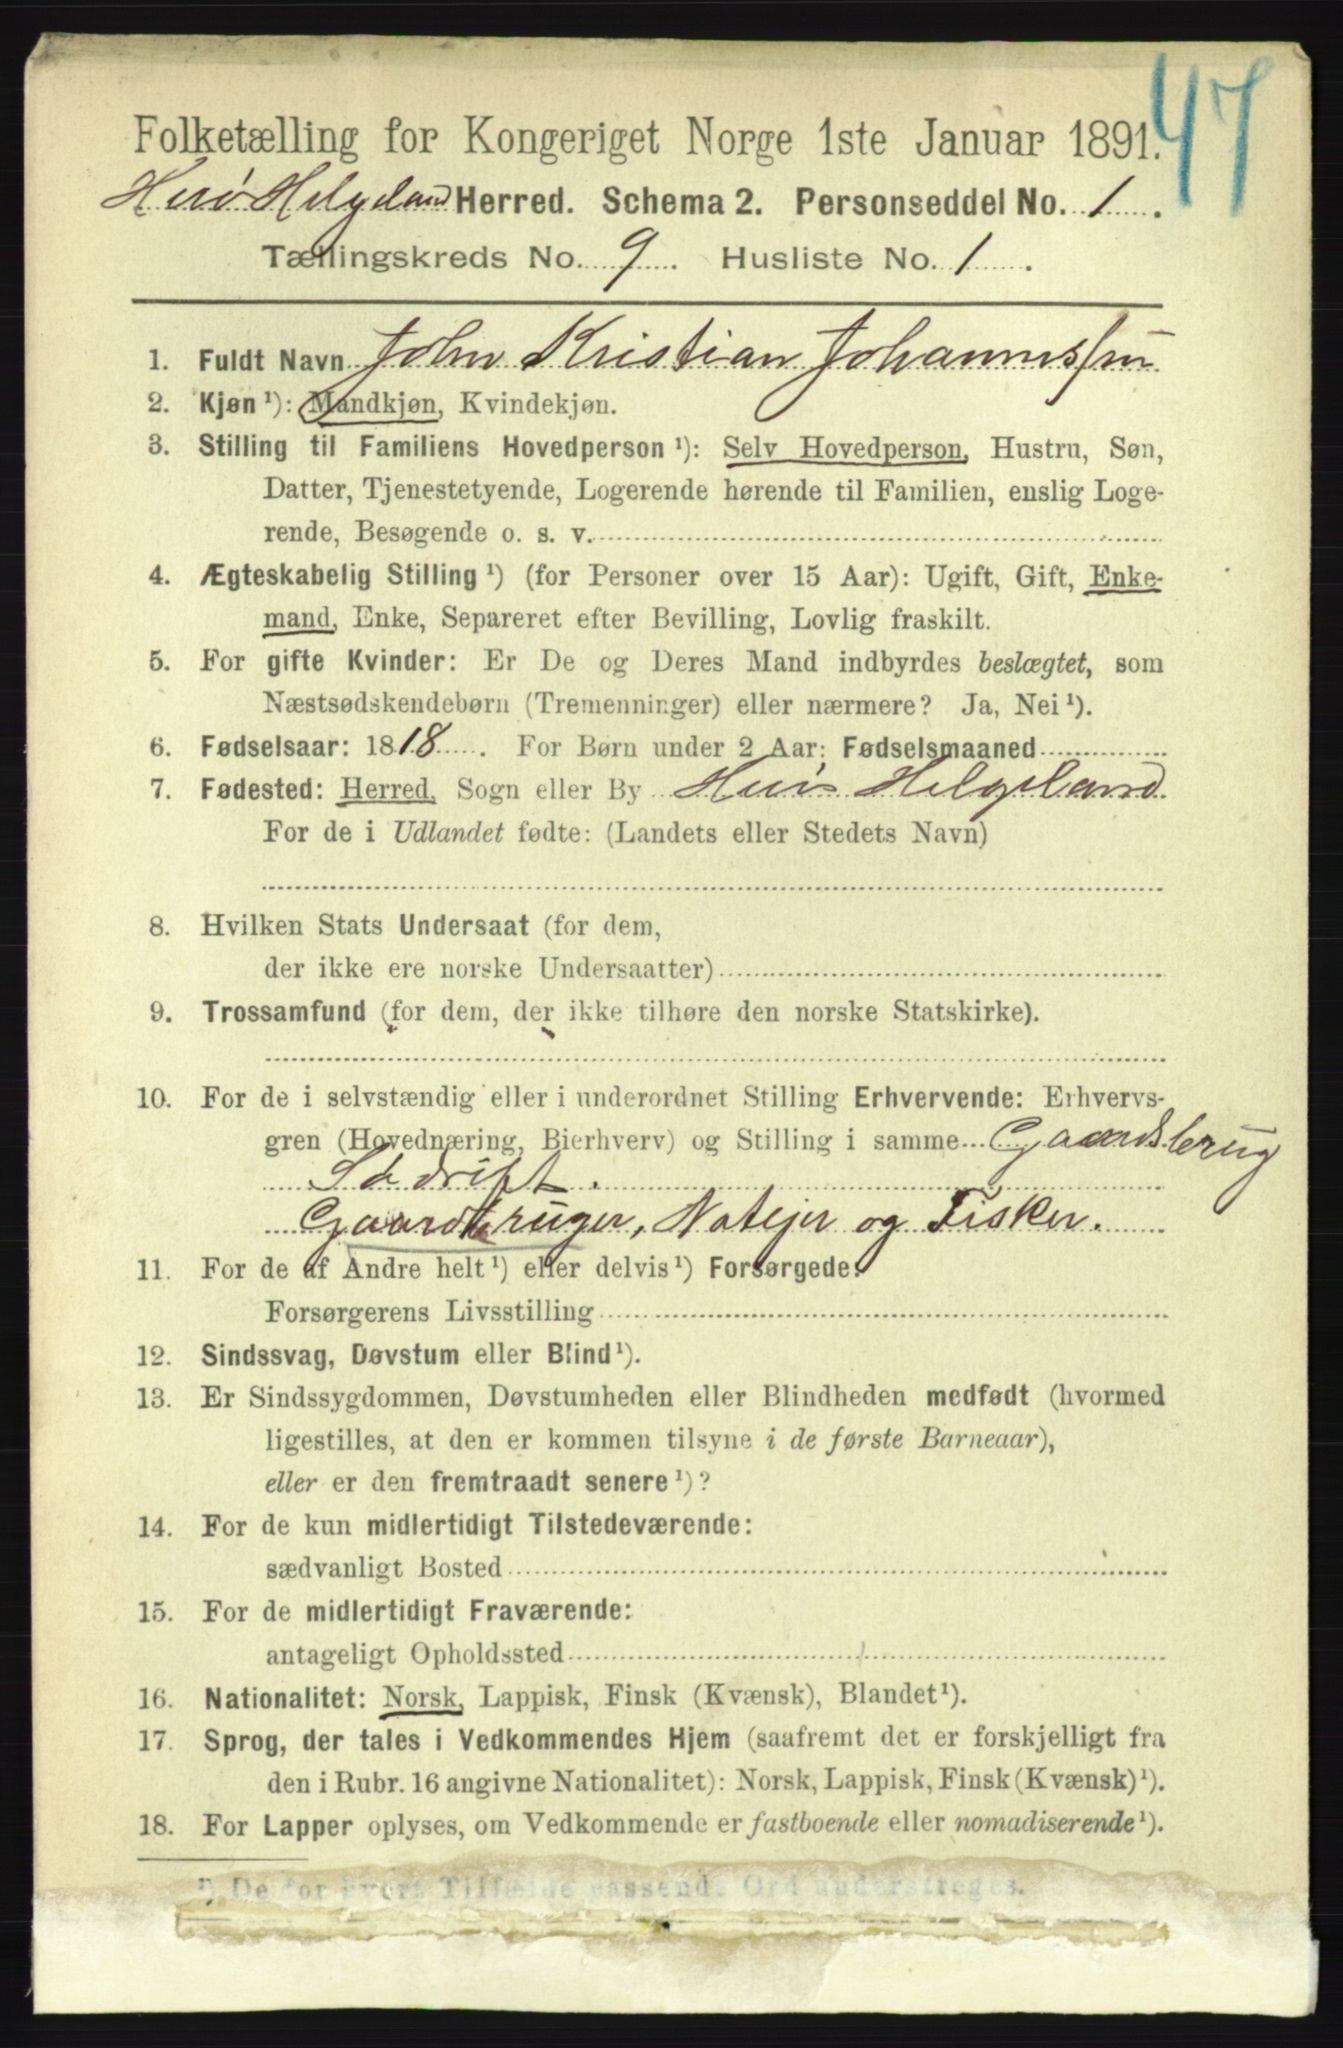 47
Folketælling for Kongeriget Norge 1ste Januar 1891.
Herø Helgeland Herred. Schema 2. Personseddel No. 1.
Tællingskreds No. 9. Husliste No. 1.
1. Fuldt Navn John Kristian Johannessen
2. Kjøn ¹): Mandkjøn, Kvindekjøn.
3. Stilling til Familiens Hovedperson ¹): Selv Hovedperson, Hustru, Søn,
Datter, Tjenestetyende, Logerende hørende til Familien, enslig Loge-
rende, Besøgende o. s. v.
4. Ægteskabelig Stilling ¹) (for Personer over 15 Aar): Ugift, Gift, Enke-
mand, Enke, Separeret efter Bevilling, Lovlig fraskilt.
5. For gifte Kvinder: Er De og Deres Mand indbyrdes beslægtet, som
Næstsødskendebørn (Tremenninger) eller nærmere? Ja, Nei ¹).
6. Fødselsaar: 1818. For Børn under 2 Aar: Fødselsmaaned
7. Fødested: Herred, Sogn eller By Herø Helgeland
For de i Udlandet fødte: (Landets eller Stedets Navn)
8. Hvilken Stats Undersaat (for dem,
der ikke ere norske Undersaatter)
9. Trossamfund (for dem, der ikke tilhøre den norske Statskirke).
10. For de i selvstændig eller i underordnet Stilling Erhvervende: Erhvervs-
gren (Hovednæring, Bierhverv) og Stilling i samme Gaardsbrug
Sødrift.
Gaardbruger, Notejer og Fisker.
11. For de af Andre helt ¹) eller delvis ¹) Forsørgede:
Forsørgerens Livsstilling
12. Sindssvag, Døvstum eller Blind ¹).
13. Er Sindssygdommen, Døvstumheden eller Blindheden medfødt (hvormed
ligestilles, at den er kommen tilsyne i de første Barneaar),
eller er den fremtraadt senere ¹)?
14. For de kun midlertidigt Tilstedeværende:
sædvanligt Bosted
15. For de midlertidigt Fraværende:
antageligt Opholdssted
16. Nationalitet: Norsk, Lappisk, Finsk (Kvænsk), Blandet ¹).
17. Sprog, der tales i Vedkommendes Hjem (saafremt det er forskjelligt fra
den i Rubr. 16 angivne Nationalitet): Norsk, Lappisk, Finsk (Kvænsk) ¹).
18. For Lapper oplyses, om Vedkommende er fastboende eller nomadiserende ¹).
¹) De for hvert Tilfælde passende Ord understreges.